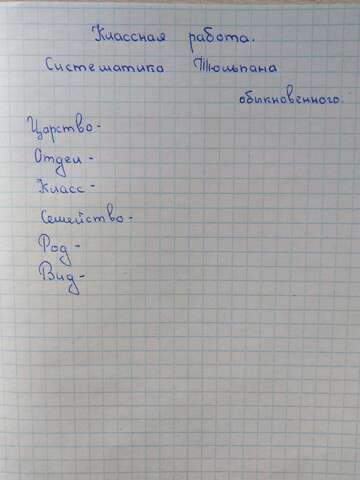 Классная работа.
Систематика Тюльпана
обыкновенного.
Царство-
Отдел-
Класс-
Семейство-
Род-
Вид-